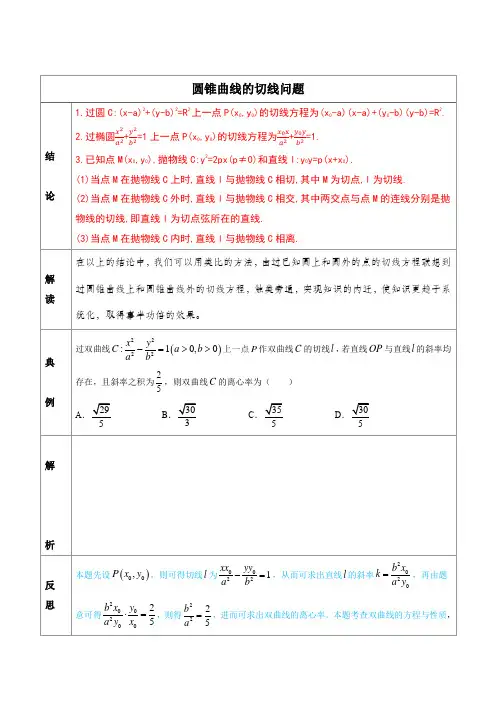 圆锥曲线的切线问题
结论
1.过圆C:(x-a)²+(y-b)²=R²上一点P(x₀,y₀)的切线方程为(x₀-a)(x-a)+(y₀-b)(y-b)=R².
2.过椭圆x²/a²+y²/b²=1上一点P(x₀,y₀)的切线方程为x₀x/a²+y₀y/b²=1.
3.已知点M(x₀,y₀),抛物线C:y²=2px(p≠0)和直线l:y₀y=p(x+x₀).
(1)当点M在抛物线C上时,直线l与抛物线C相切,其中M为切点,l为切线.
(2)当点M在抛物线C外时,直线l与抛物线C相交,其中两交点与点M的连线分别是抛
物线的切线,即直线l为切点弦所在的直线.
(3)当点M在抛物线C内时,直线l与抛物线C相离.
解读
在以上的结论中，我们可以用类比的方法，由过已知圆上和圆外的点的切线方程联想到
过圆锥曲线上和圆锥曲线外的切线方程，触类旁通，实现知识的内迁，使知识更趋于系
统化，取得事半功倍的效果。
典例
过双曲线C:x²/a²-y²/b²=1(a>0,b>0)上一点P作双曲线C的切线l，若直线OP与直线l的斜率均
存在，且斜率之积为2/5，则双曲线C的离心率为（ ）
A．√29/5 B．√30/3 C．√35/5 D．√30/5
解析
反思
本题先设P(x₀,y₀)，则可得切线l为xx₀/a²-yy₀/b²=1，从而可求出直线l的斜率k=b²x₀/a²y₀，再由题
意可得b²x₀/a²y₀·y₀/x₀=2/5，则得b²/a²=2/5，进而可求出双曲线的离心率，本题考查双曲线的方程与性质，